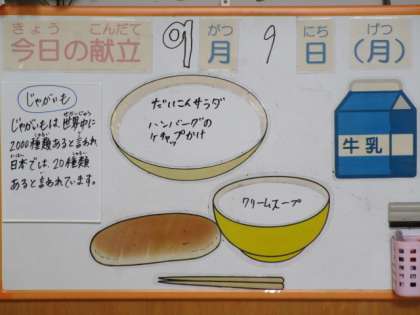 きょう こんだて がつ にち げつ
今日の献立 9月 9日 (月)
じゃがいも
じゃがいもは、世界中に
せかいじゅう
2000種類あると言われ
日本では、20種類
あると言われています。
だいこんサラダ
ハンバーグの
ケチャップかけ
クリームスープ
牛乳